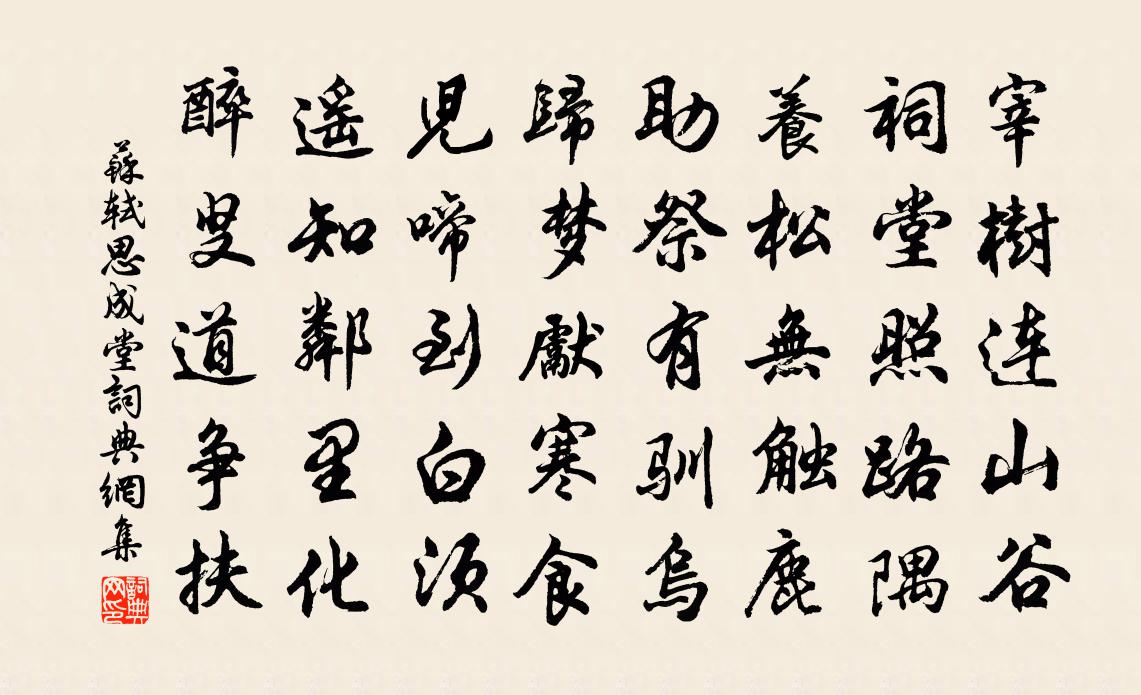 宰樹连山谷
祠堂照路隅
養松無触鹿
助祭有驯烏
歸梦獻寒食
児啼到白须
遥知鄰里化
醉叟道争扶
蘇轼思成堂詞典網集
詞典网印